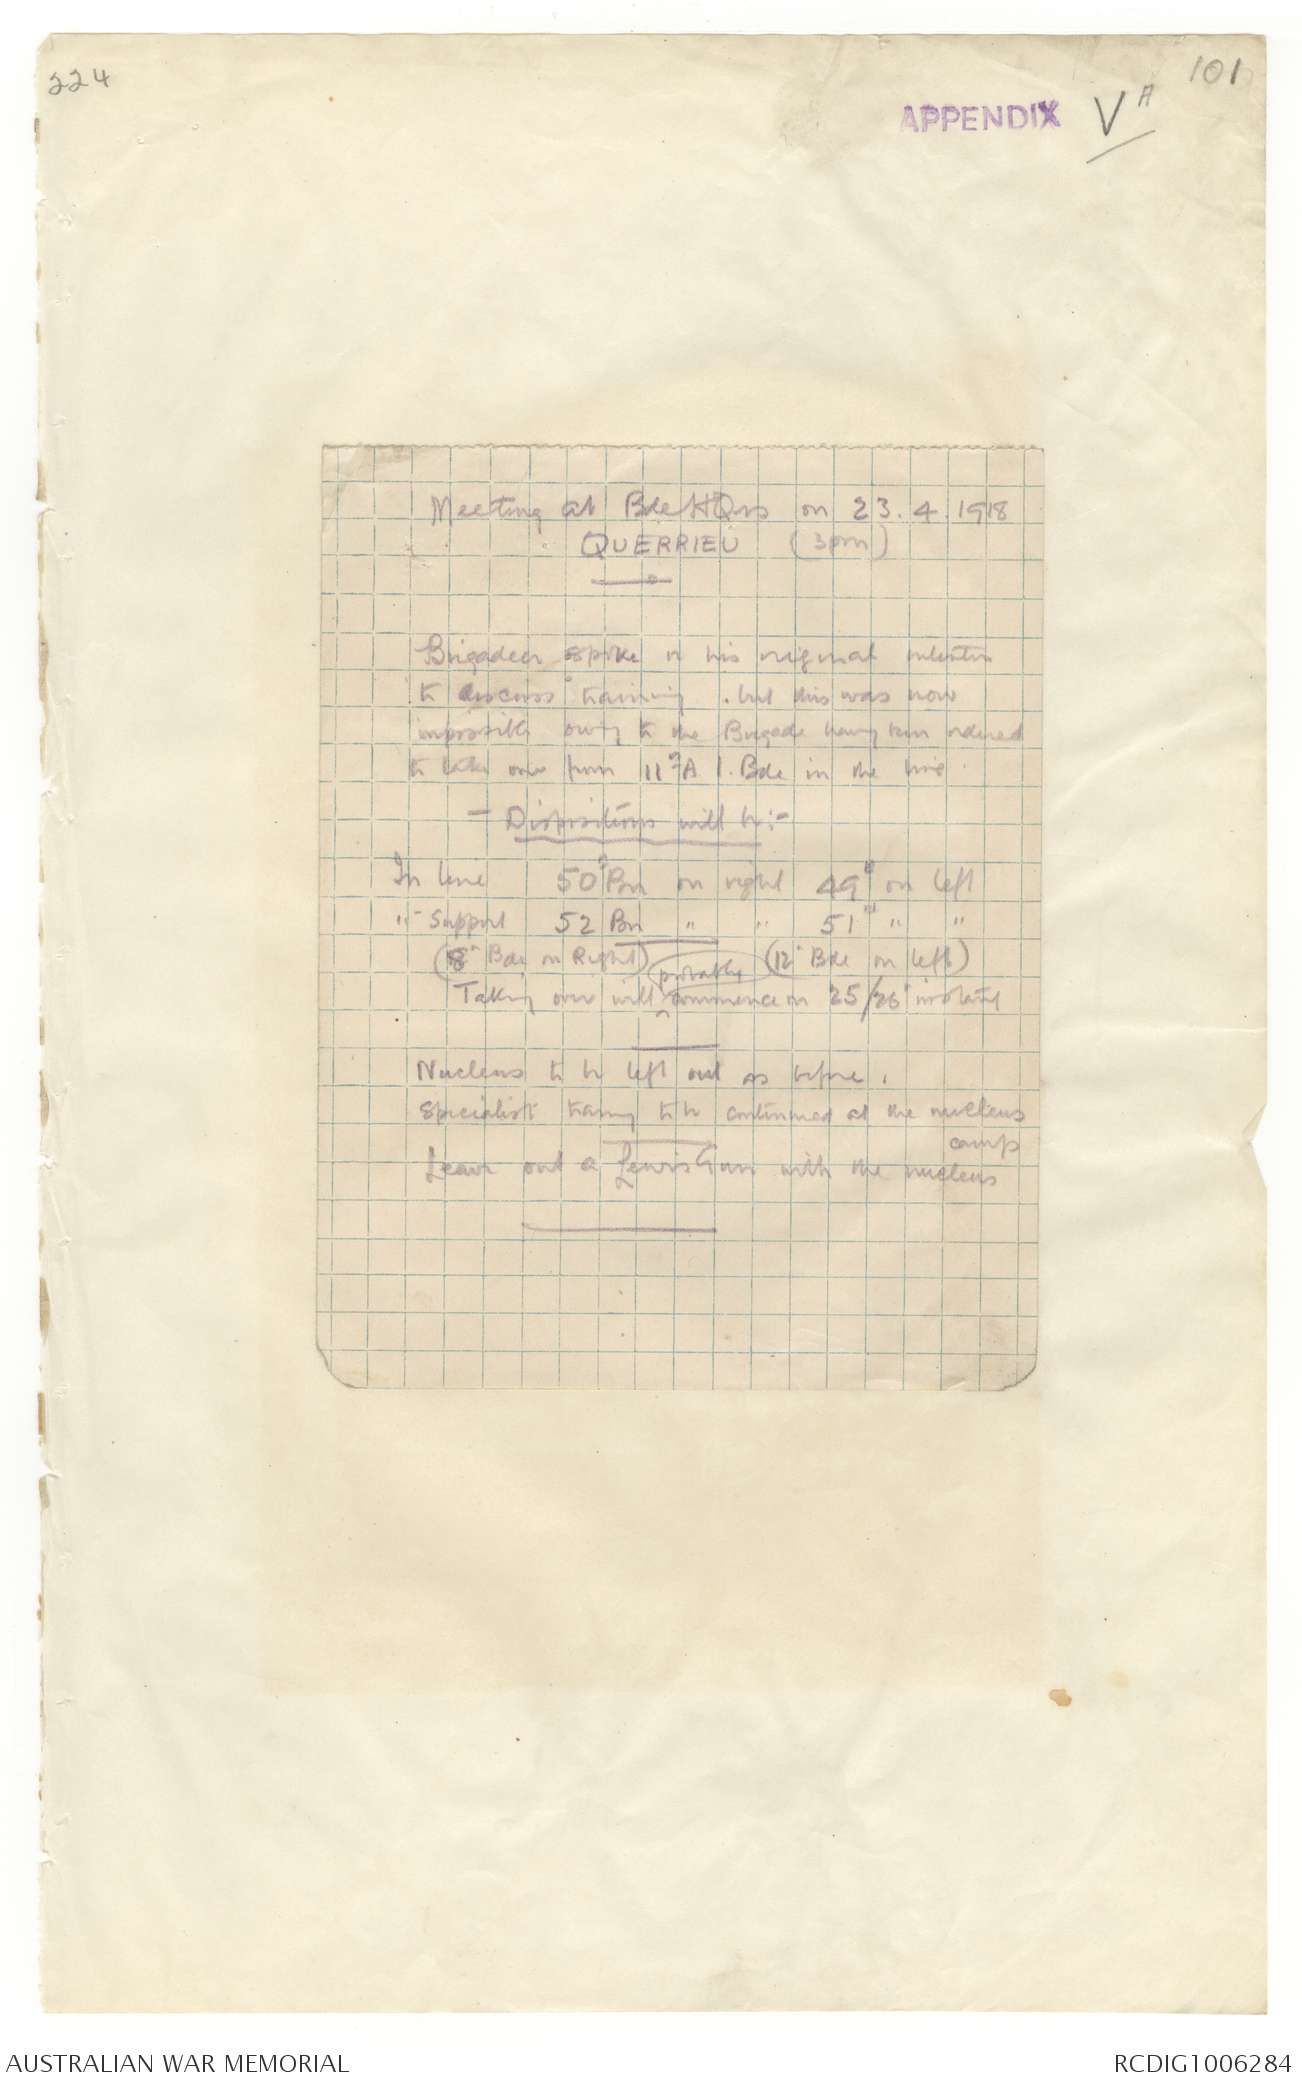 224
101
APPENDIX V A
Meeting at Bde HQrs on 23.4.1918
QUERRIEU (3pm)
Brigadeer spoke on his original intention
to discuss training . but this was now
impossible owing to the Brigade having been ordered
to take over from 11th A I. Bde in the line
- Dispositions will be:-
In line 50th Bn on right 49th on left
" Support 52 Bn " " 51st " "
(8th Bde on Right) (12th Bde on left)
probably
Taking over will ^ commence on 25/26th instant
Nucleus to be left out as before.
Specialist training to be continued at the nucleus
camp
Leave out a Lewis Gun with the nucleus
AUSTRALIAN WAR MEMORIAL
RCDIG1006284